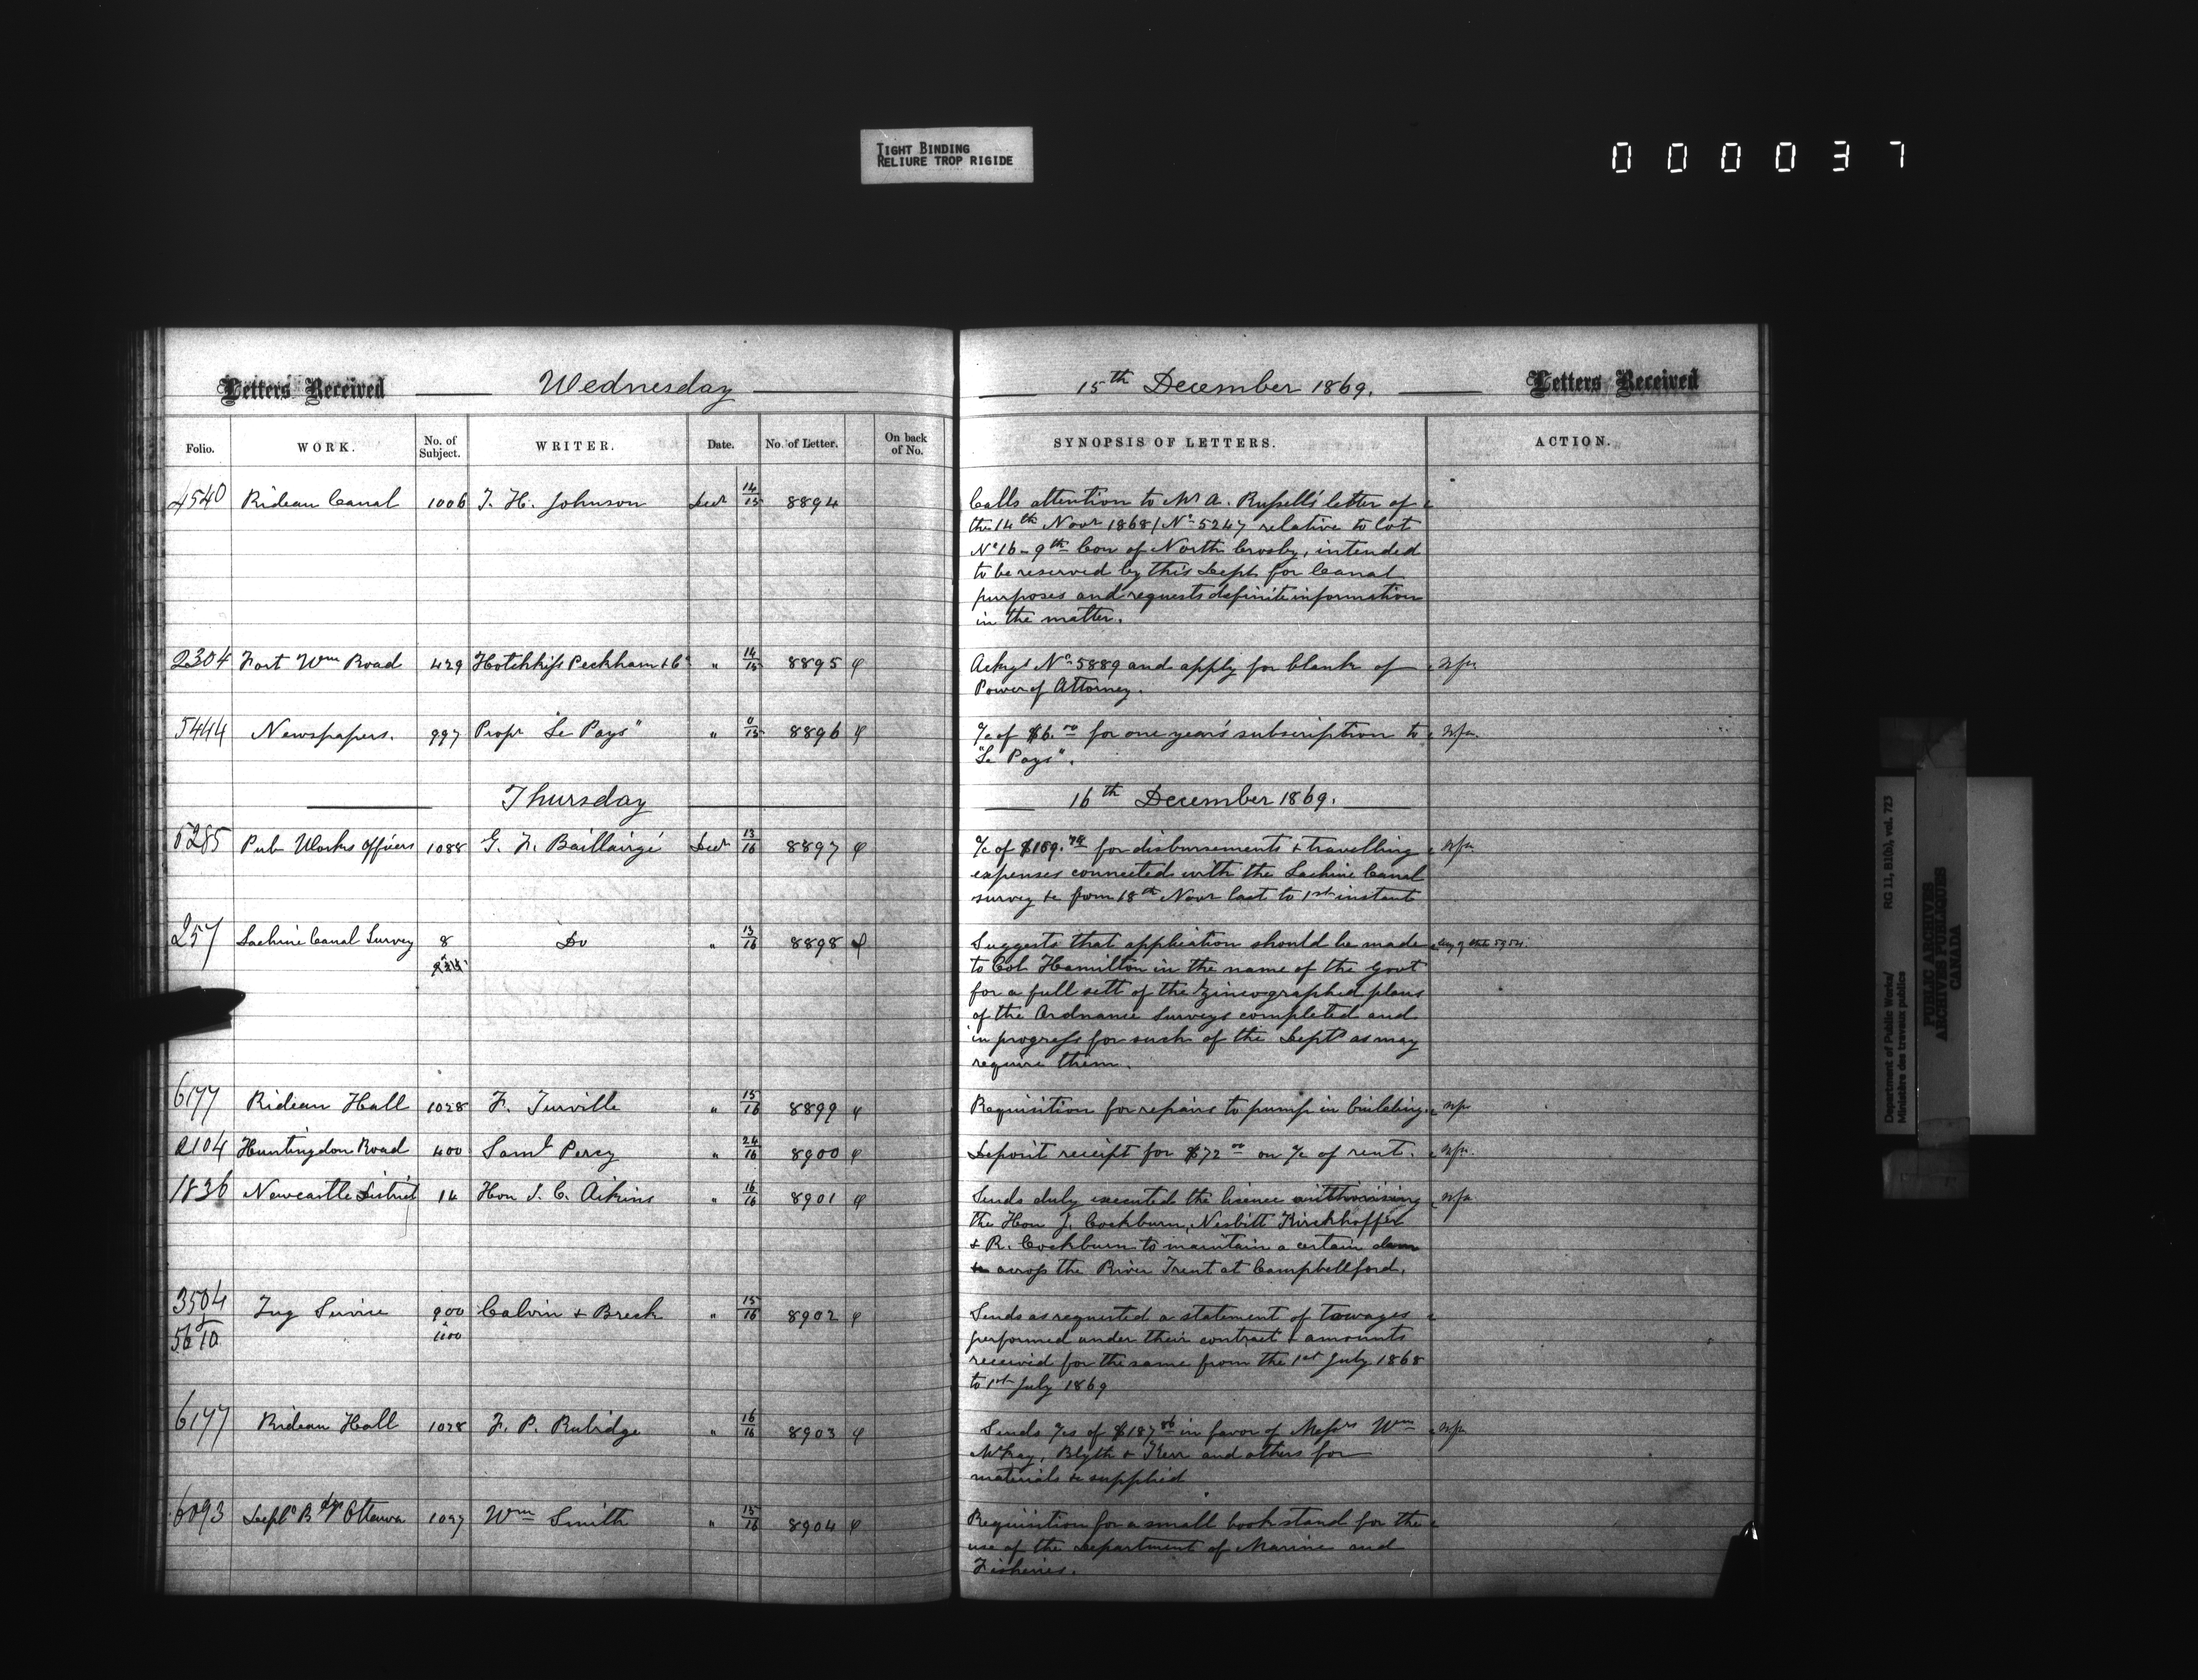 TIGHT BINDING
RELIURE TROP RIGIDE
000037
Letters Received Wednesday 15th December 1869. Letters Received
Folio. WORK. No. of Subject. WRITER. Date. No. of Letter. On back of No. SYNOPSIS OF LETTERS. ACTION.
4540 Rideau Canal 1006 T. H. Johnson Decr 14/15 8894 Calls attention to Mr A. Russell's letter of
the 14th Novr 1868/No 5247 relative to lot
No 16 - 9th Con of North Crosby, intended
to be reserved by this Dept for Canal
purposes and requests definite information
in the matter.
2304 Fort Wm Road 429 Hotchkiss Peckham & Co " 14/15 8895 φ Ackgs No 5889 and apply for blank of nfa
Power of Attorney.
5444 Newspapers. 997 Propr "Le Pays" " 0/15 8896 φ a/c of $6.00 for one year's subscription to nfa.
"Le Pays".
Thursday 16th December 1869.
5285 Pub Works Officers 1088 G. F. Baillairgé Decr 13/16 8897 φ a/c of $189.78 for disbursements & travelling nfa
expenses connected with the Lachine Canal
survey &c from 18th Novr last to 1st instant
257 Lachine Canal Survey 8 Do " 13/16 8898 φ Suggests that application should be made
to Col. Hamilton in the name of the Govt
for a full sett of the Zincographed plans
of the Ordnance Surveys completed and
in progress for such of the Depts as may
require them.
6177 Rideau Hall 1028 F. Turville " 15/16 8899 φ Requisition for repairs to pump in building. nfa
2104 Huntingdon Road 400 Saml Percy " 24/16 8900 φ Deposit receipt for $72.00 on a/c of rent. nfa.
1836 Newcastle District 14 Hon J. C. Aikins " 16/16 8901 φ Sends duly executed the licence authorising nfa
the Hon J. Cockburn, Nesbitt Kirchhoffer
& R. Cockburn to maintain a certain dam
across the River Trent at Campbellford.
3504 Tug Service 900 Calvin & Breck " 15/16 8902 φ Sends as requested a statement of towages
& 5610 & 1100 performed under their contract & amounts
received for the same from the 1st July 1868
to 1st July 1869
6177 Rideau Hall 1028 F. P. Rubidge " 16/16 8903 φ Sends a/cs of $187.86 in favor of Messrs Wm nfa
McKay, Blyth & Kerr and others for
materials &c supplied
6093 Deptl Bdgs Ottawa 1027 Wm Smith " 15/16 8904 φ Requisition for a small book stand for the
use of the Department of Marine and
Fisheries.
Department of Public Works/ RG 11, B1(b), vol. 723
Ministère des travaux publics
PUBLIC ARCHIVES
ARCHIVES PUBLIQUES
CANADA